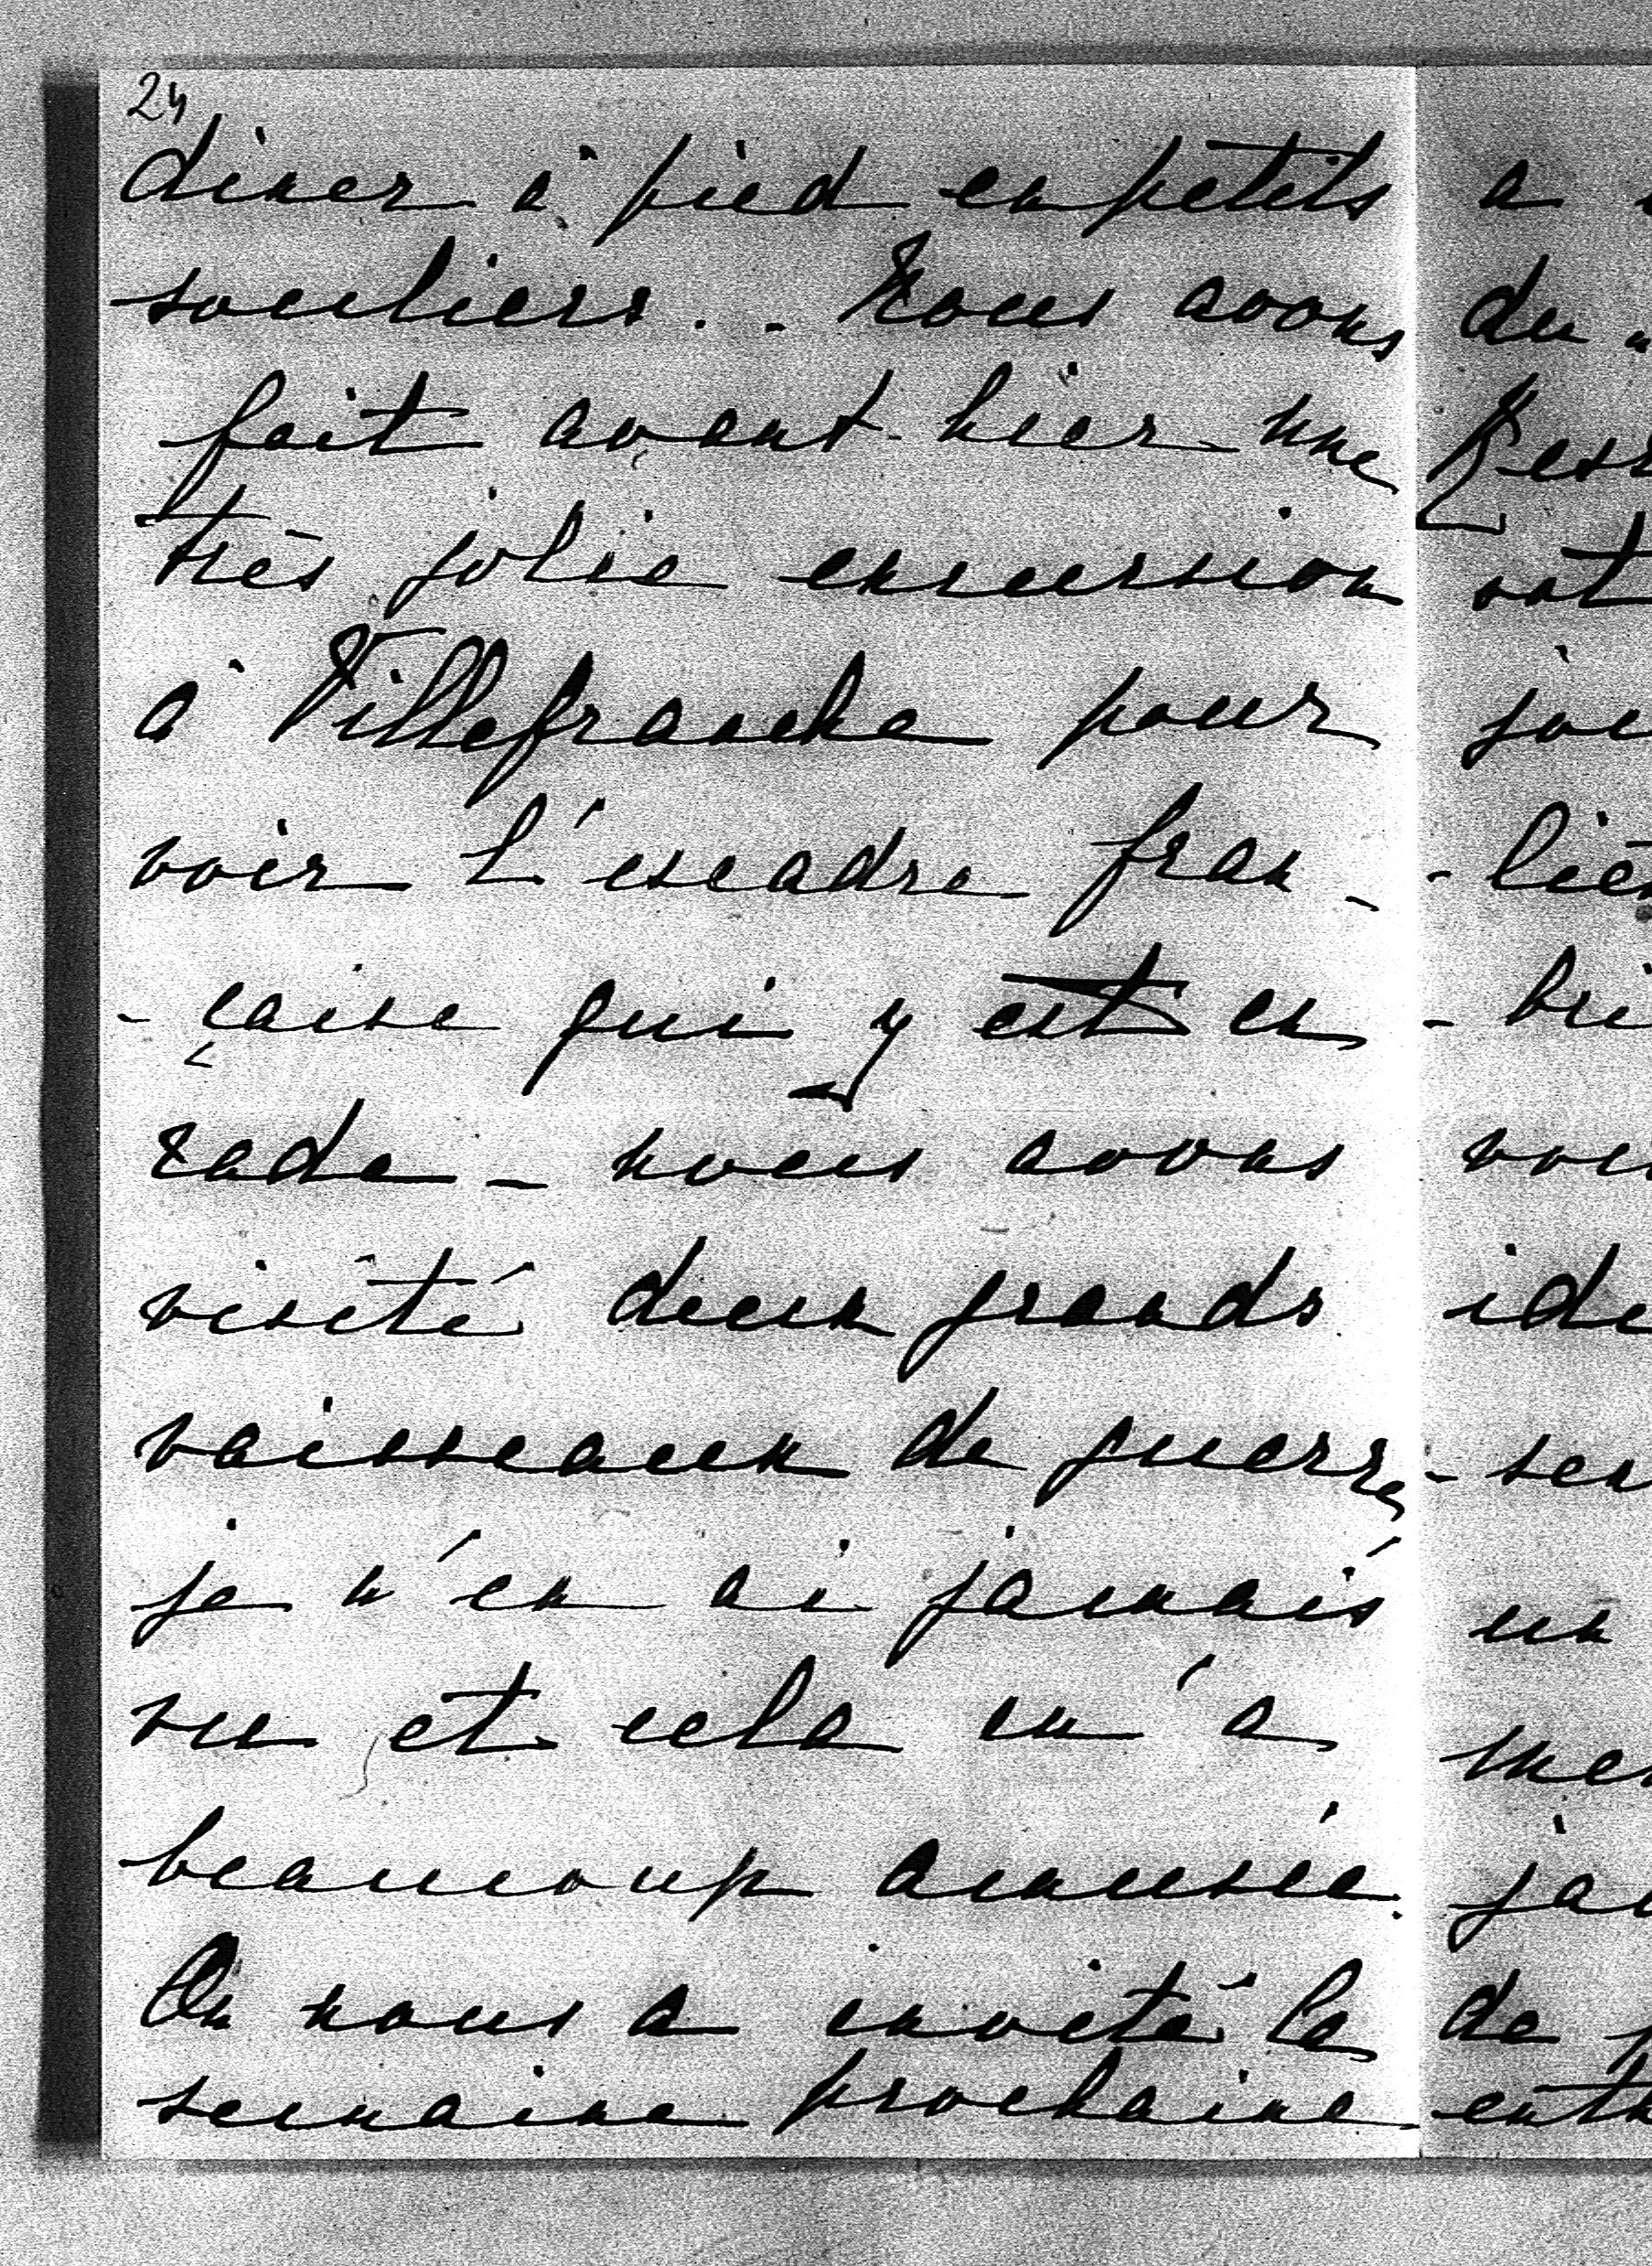 24
diner à pied en petits
souliers... Nous avons
fait avant-hier une
très jolie excursion
à Villefranche pour
voir l'escadre fran-
-çaise qui y est en
rade - nous avons
visité deux grands
vaisseaux de guerre
je n'en ai jamais
vu et cela m'a
beaucoup amusée.
On nous a invité la
semaine prochaine
a
du
vot
jou
- liè
- bri
vou
ide
- sen
un
men
jai
de
entr